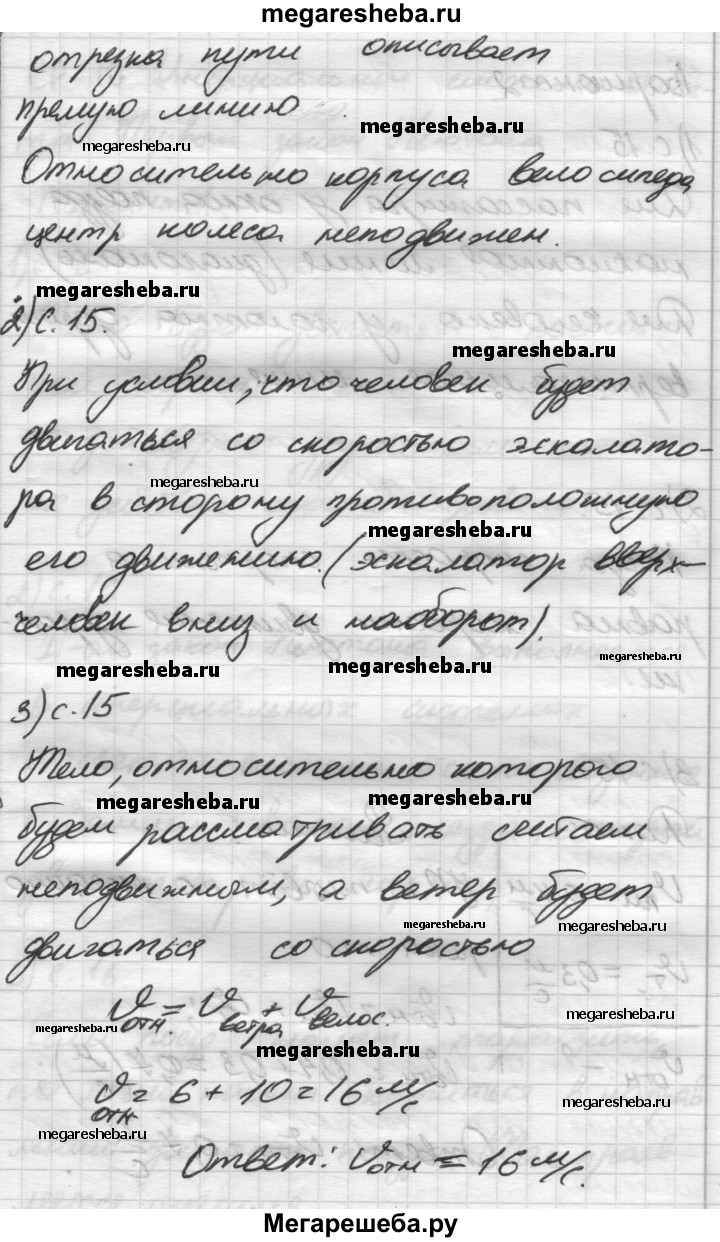 megaresheba.ru
отрезка пути описывает
прямую линию.
megaresheba.ru
megaresheba.ru
Относительно корпуса велосипеда
центр колеса неподвижен.
megaresheba.ru
2) с. 15.
megaresheba.ru
При условии, что человек будет
двигаться со скоростью эскалато-
megaresheba.ru
ра в сторону противоположную
megaresheba.ru
его движению. (эскалатор вверх-
человек вниз и наоборот).
megaresheba.ru
megaresheba.ru
megaresheba.ru
3) с. 15
Тело, относительно которого
megaresheba.ru
megaresheba.ru
будем рассматривать считаем
неподвижном, а ветер будет
megaresheba.ru
megaresheba.ru
двигаться со скоростью
Vотн. = Vветра + Vвелос.
megaresheba.ru
megaresheba.ru
megaresheba.ru
Vотн = 6 + 10 = 16 м/с
megaresheba.ru
megaresheba.ru
Ответ: Vотн = 16 м/с.
Мегарешеба.ру